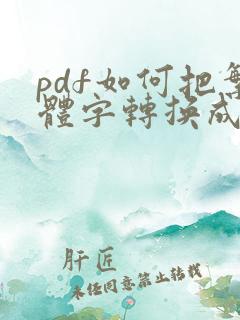 pdf如何把繁
體字轉換成
肝匠
未经同意禁止转载